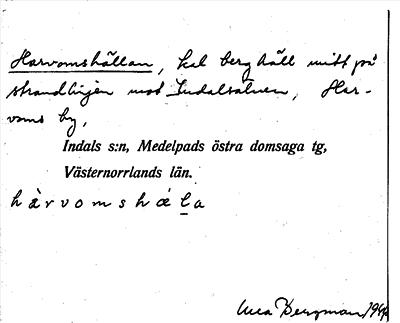 Harvomshällan, kal berghäll mitt på
strandlinjen mot Indalsälven, Har-
voms by,
Indals s:n, Medelpads östra domsaga tg,
Västernorrlands län.
hàrvomshæla
Bergman 1964